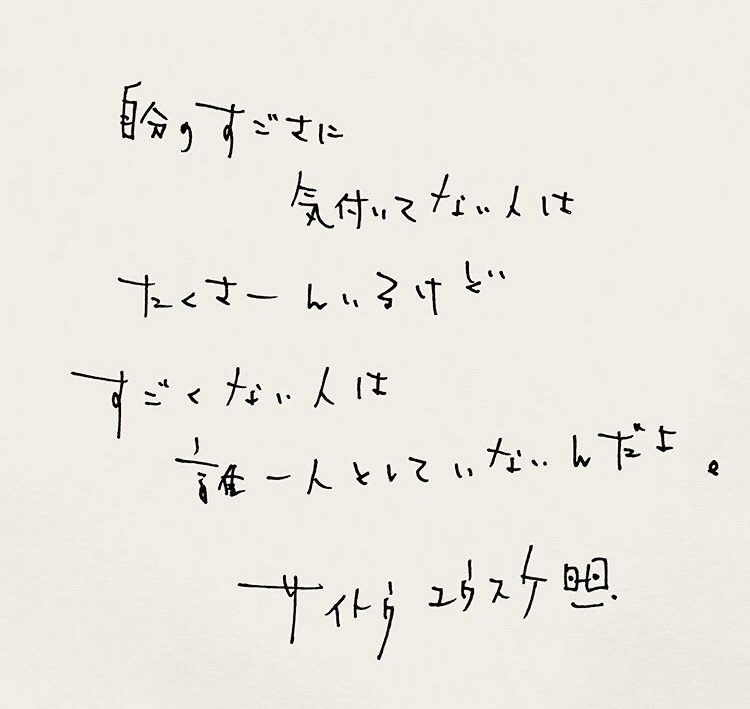 自分のすごさに
気付いてない人は
たくさーんいるけど
すごくない人は
誰一人としていないんだよ。
サイトウユウスケ